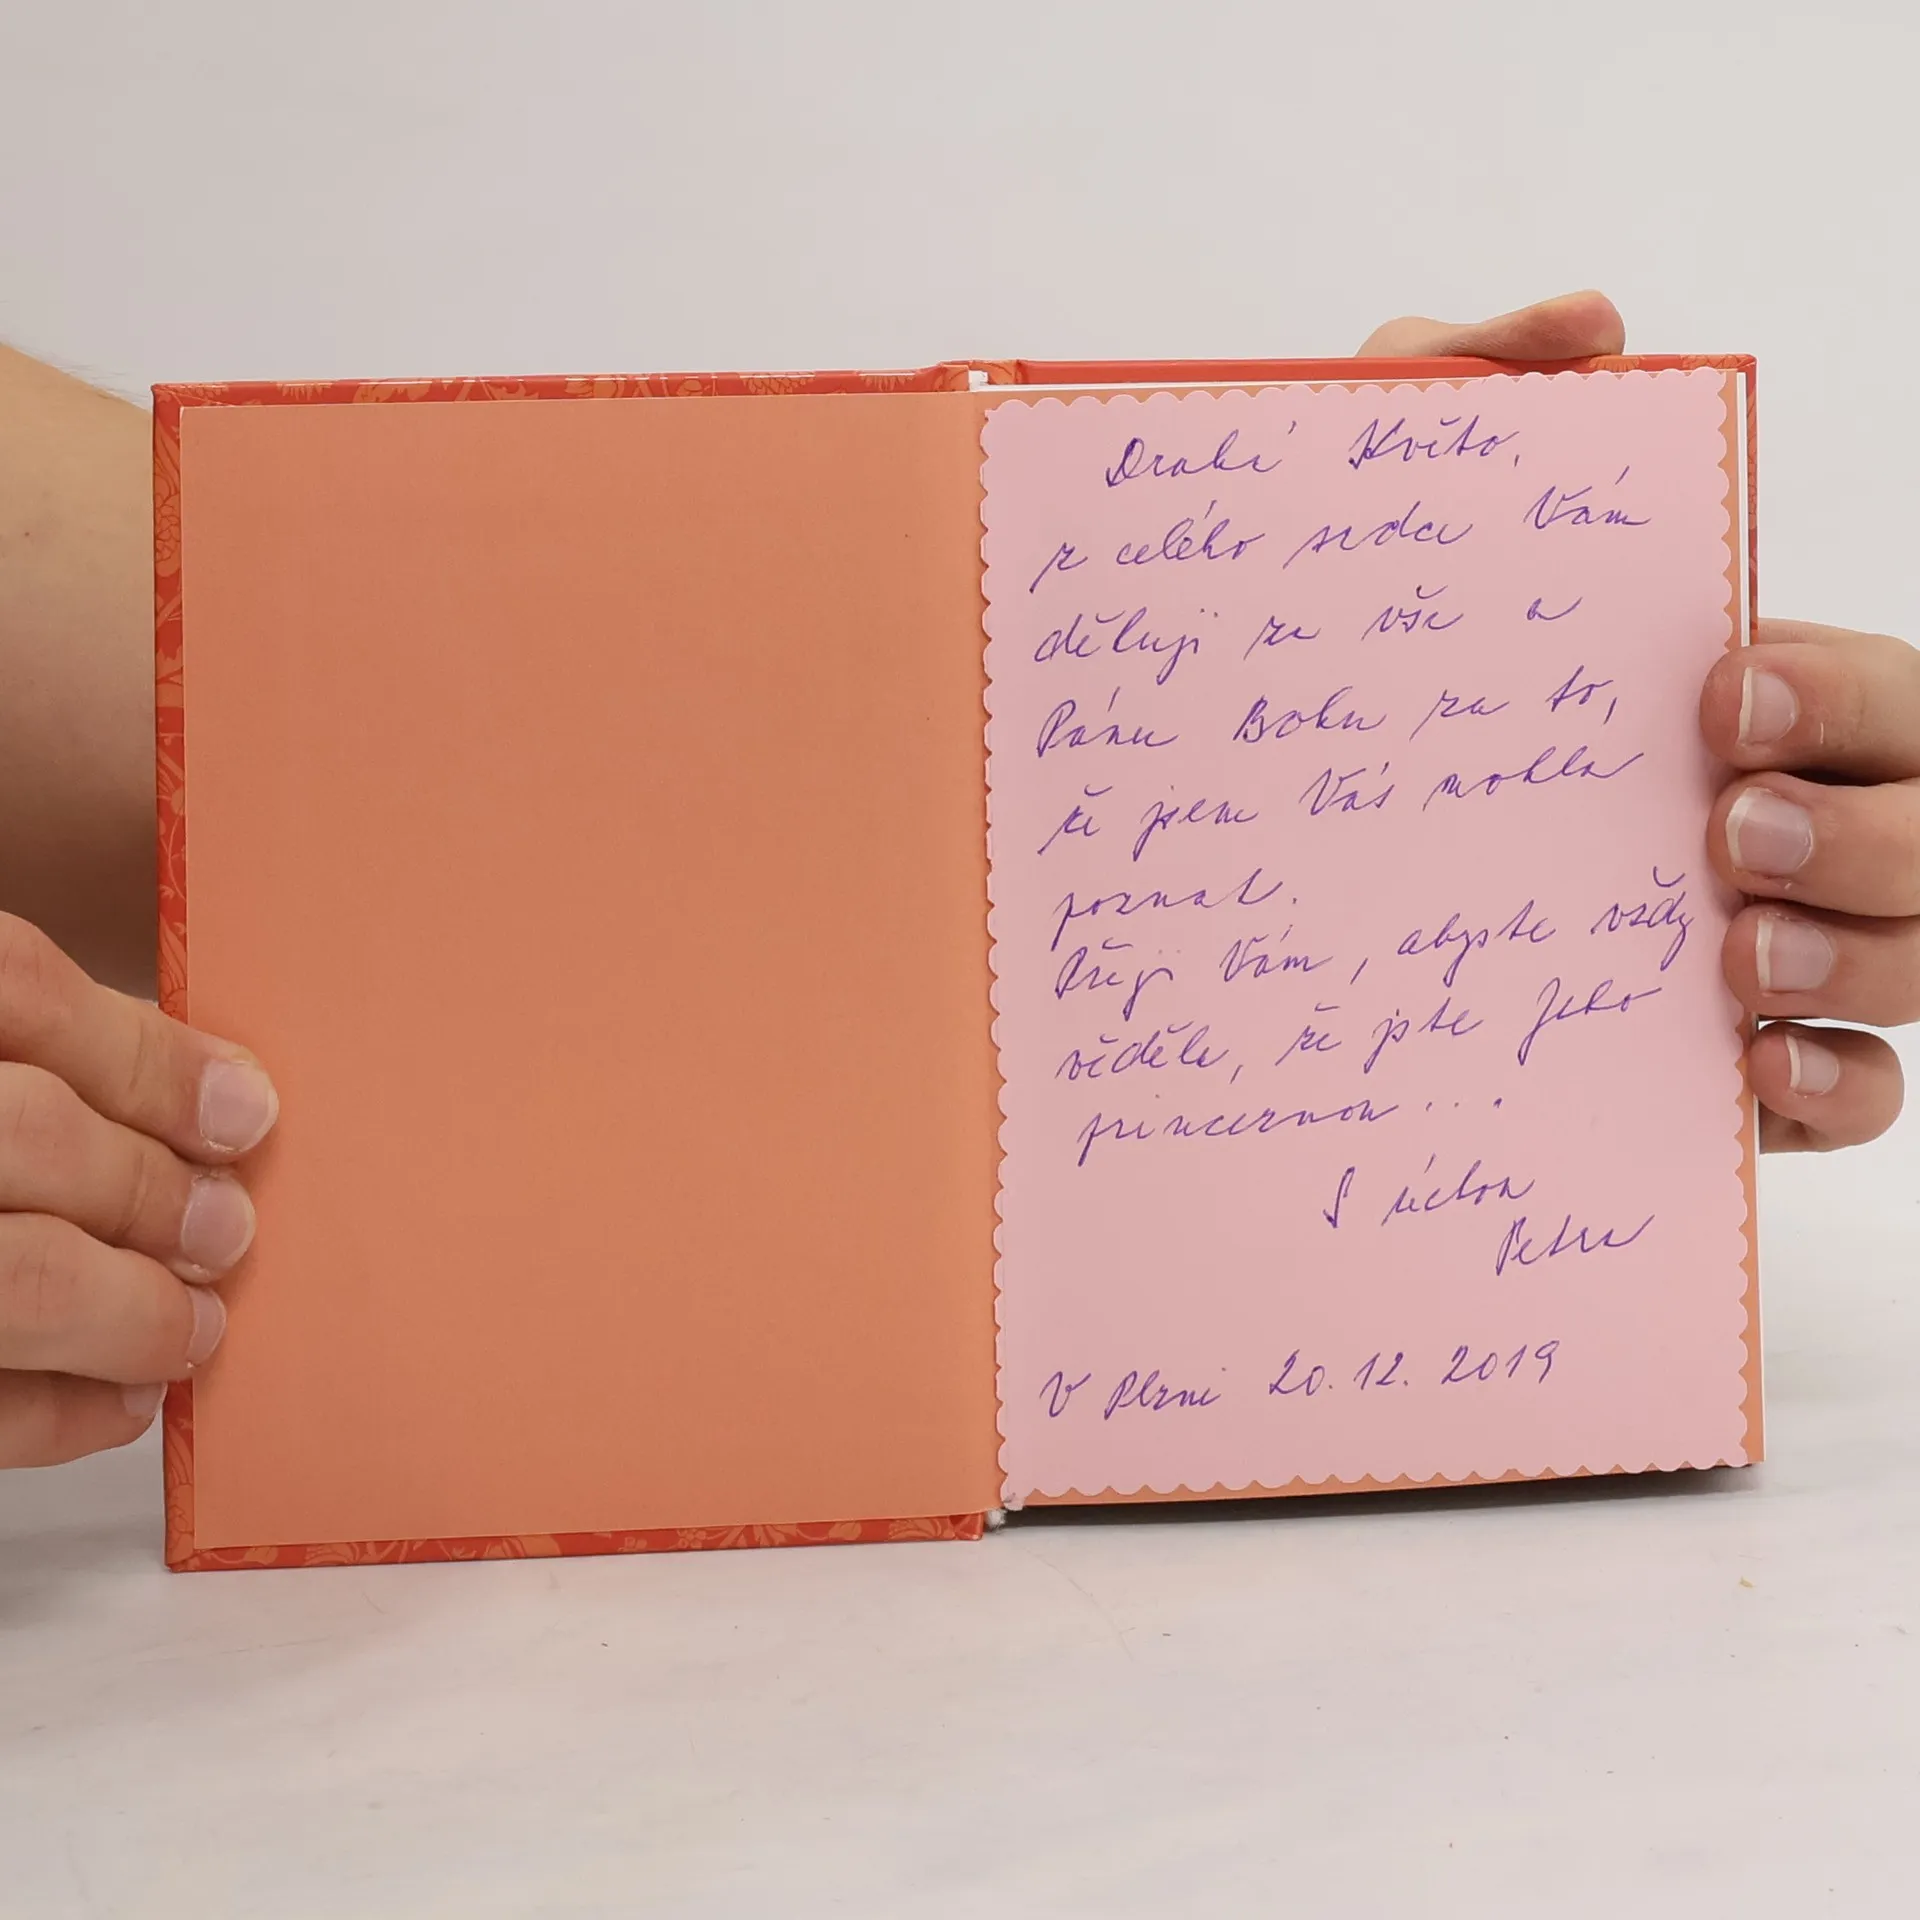 Drahá Květo,
z celého srdce Vám
děkuji za vše a
Pánu Bohu za to,
že jsem Vás mohla
poznat.
Přeji Vám, abyste vždy
věděla, že jste Jeho
princeznou...
S úctou
Petra
V Plzni 20. 12. 2019